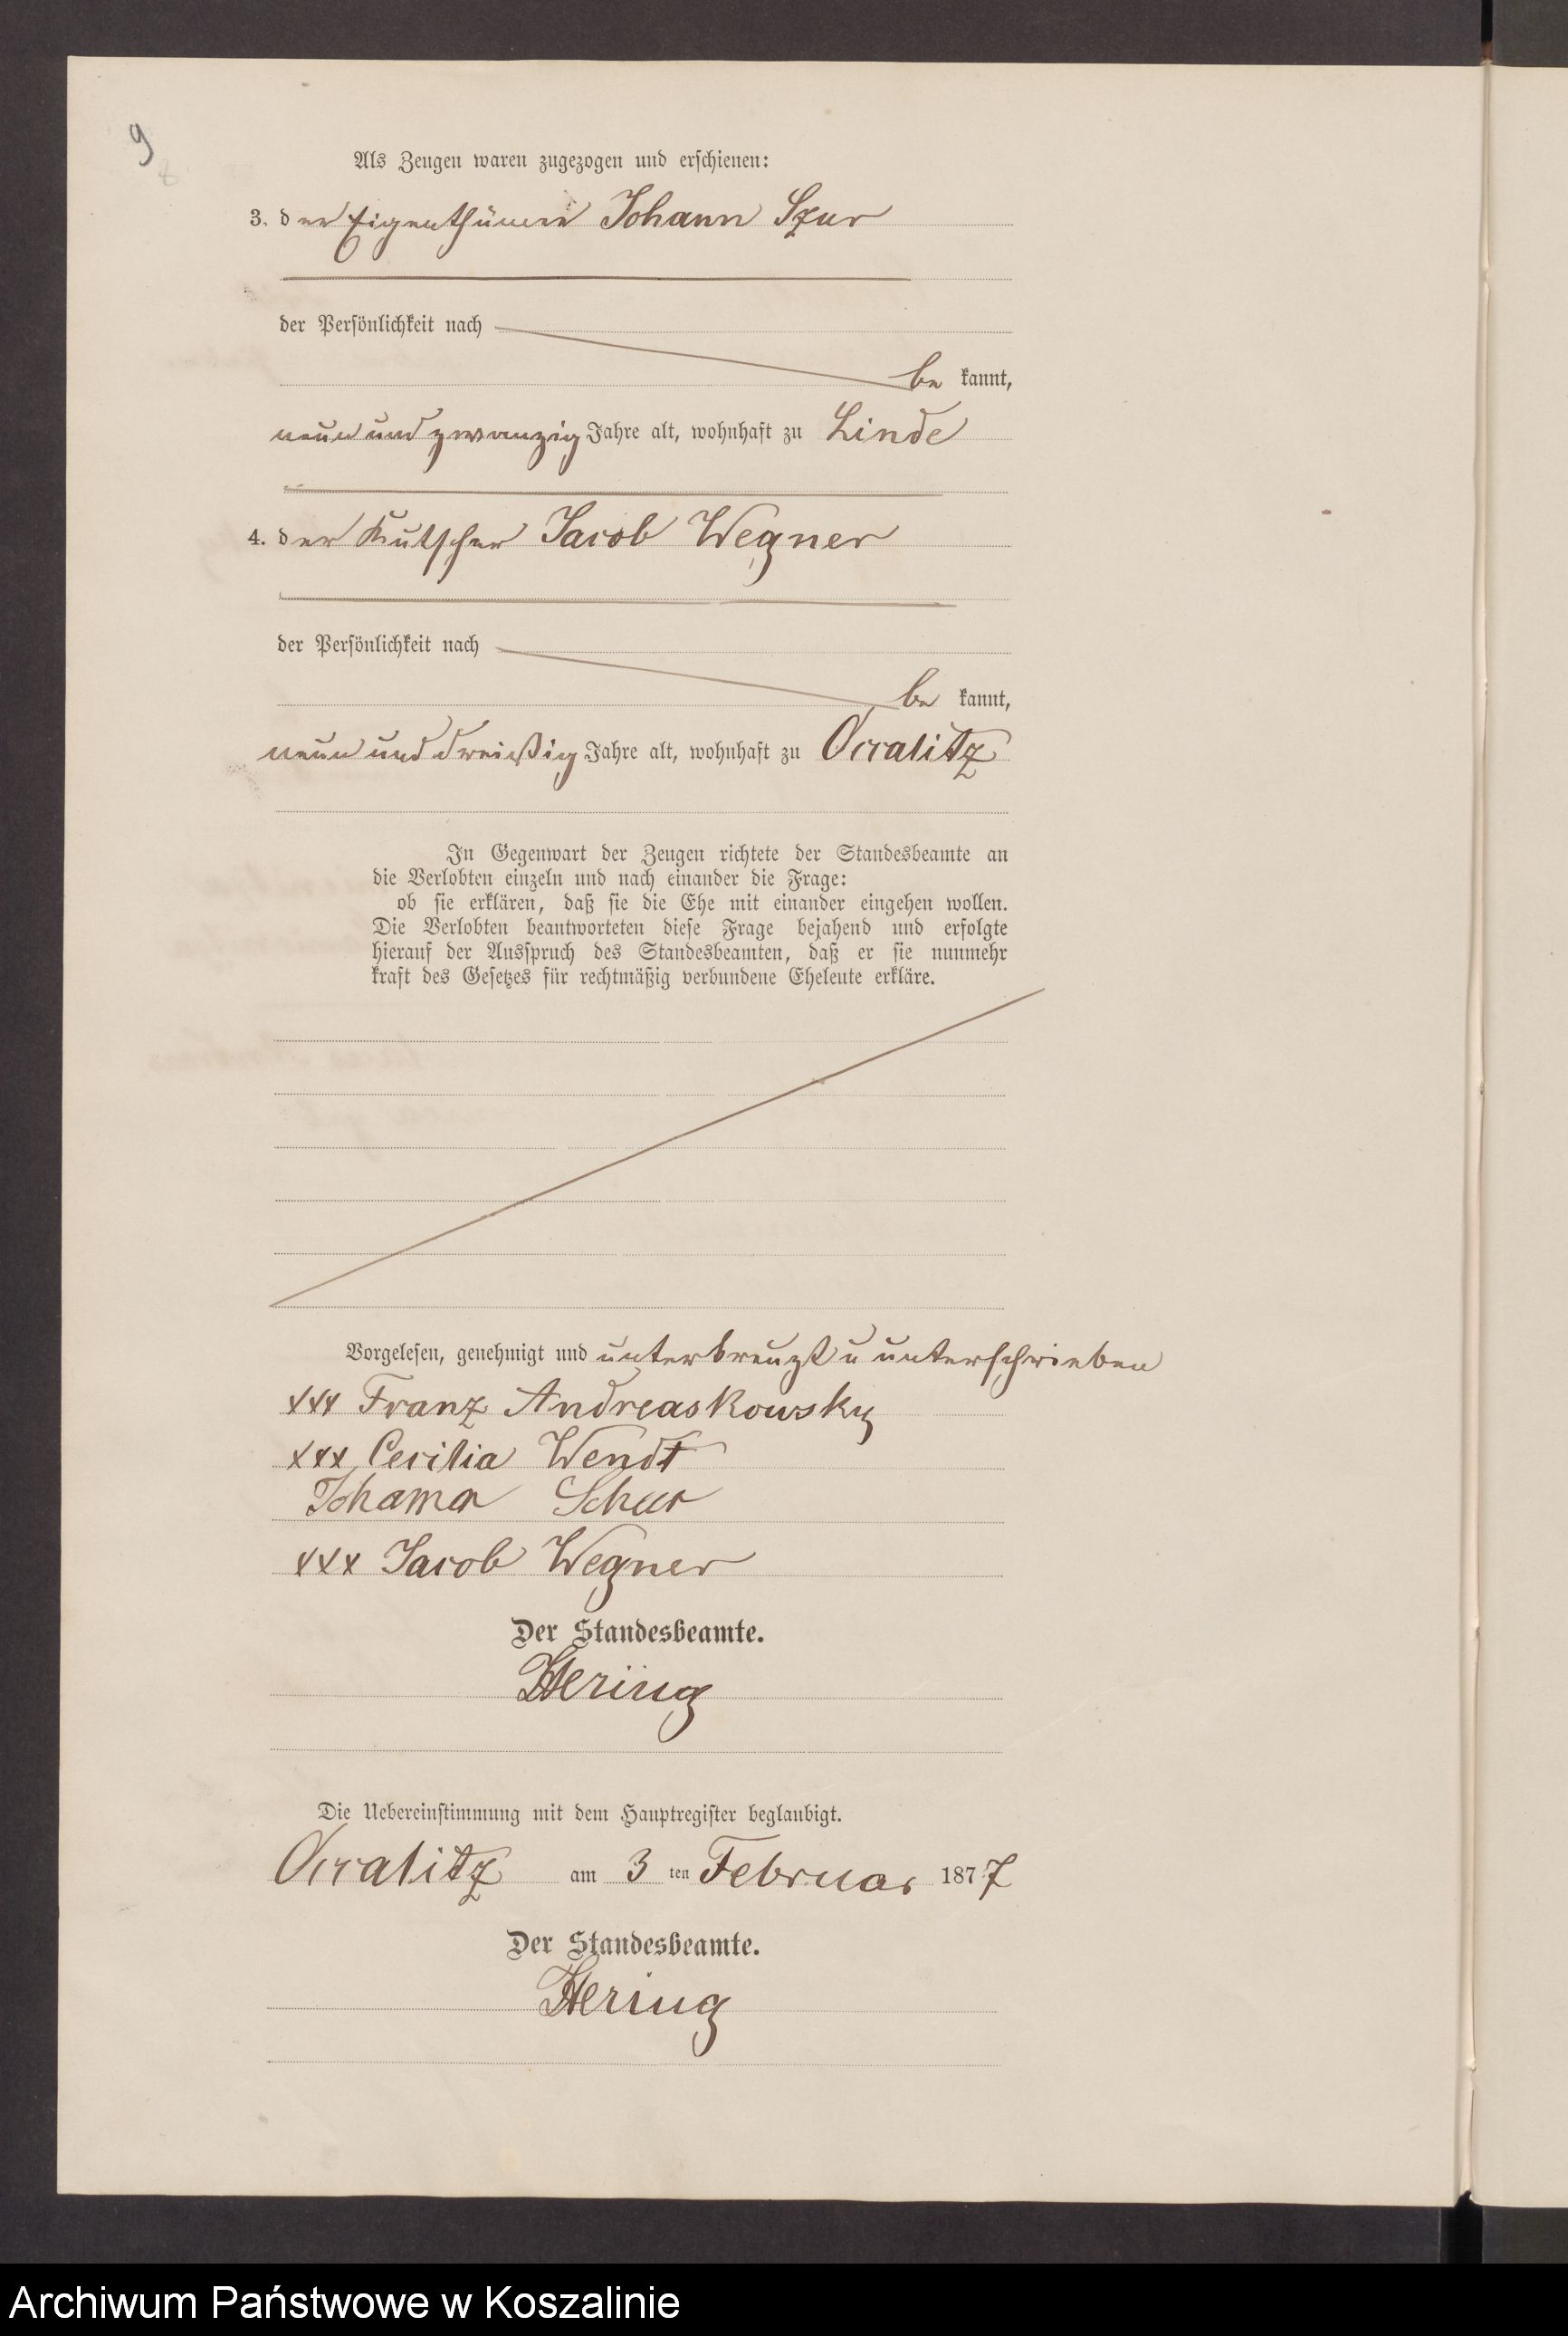 9
Als Zeugen waren zugezogen und erschienen:
3. der Eigenthümer Johann Szur
der Persönlichkeit nach
be kannt,
neun und zwanzig Jahre alt, wohnhaft zu Linde
4. der Kutscher Jacob Wegner
der Persönlichkeit nach
be kannt,
neun und dreißig Jahre alt, wohnhaft zu Occalitz
In Gegenwart der Zeugen richtete der Standesbeamte an
die Verlobten einzeln und nach einander die Frage:
ob sie erklären, daß sie die Ehe mit einander eingehen wollen.
Die Verlobten beantworteten diese Frage bejahend und erfolgte
hierauf der Ausspruch des Standesbeamten, daß er sie nunmehr
kraft des Gesetzes für rechtmäßig verbundene Eheleute erkläre.
Vorgelesen, genehmigt und unterkreuzt u unterschrieben
xxx Franz Andreaskowsky
xxx Cecilia Wendt
Schur
xxx Jacob Wegner
Der Standesbeamte.
Hering
Die Uebereinstimmung mit dem Hauptregister beglaubigt.
Occalitz am 3 ten Februar 1877
Der Standesbeamte.
Hering
Archiwum Państwowe w Koszalinie